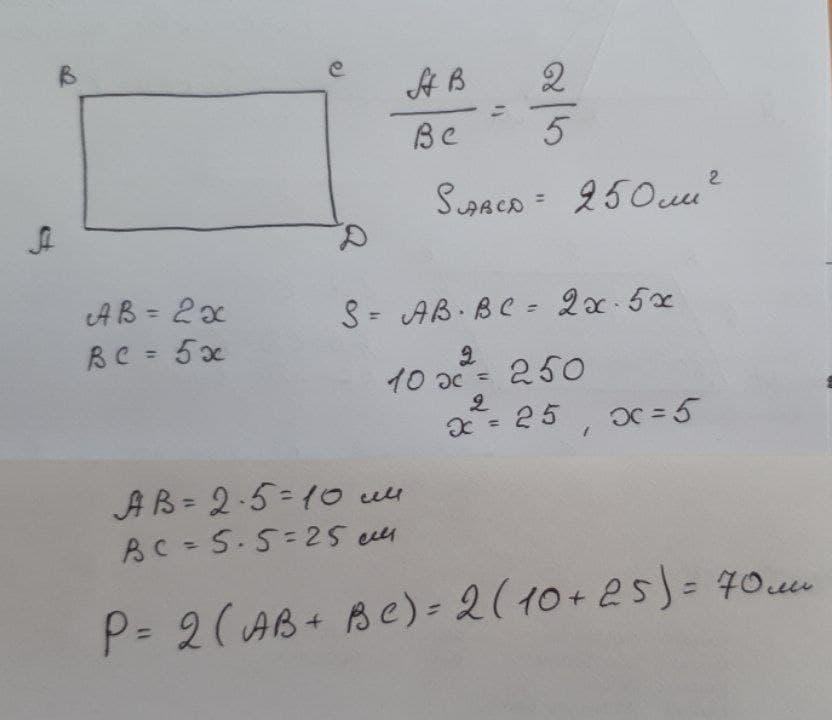 B C
A D
AB/BC = 2/5
S_ABCD = 250 см²
AB = 2x
BC = 5x
S = AB · BC = 2x · 5x
10x² = 250
x² = 25, x = 5
AB = 2 · 5 = 10 см
BC = 5 · 5 = 25 см
P = 2(AB + BC) = 2(10 + 25) = 70 см